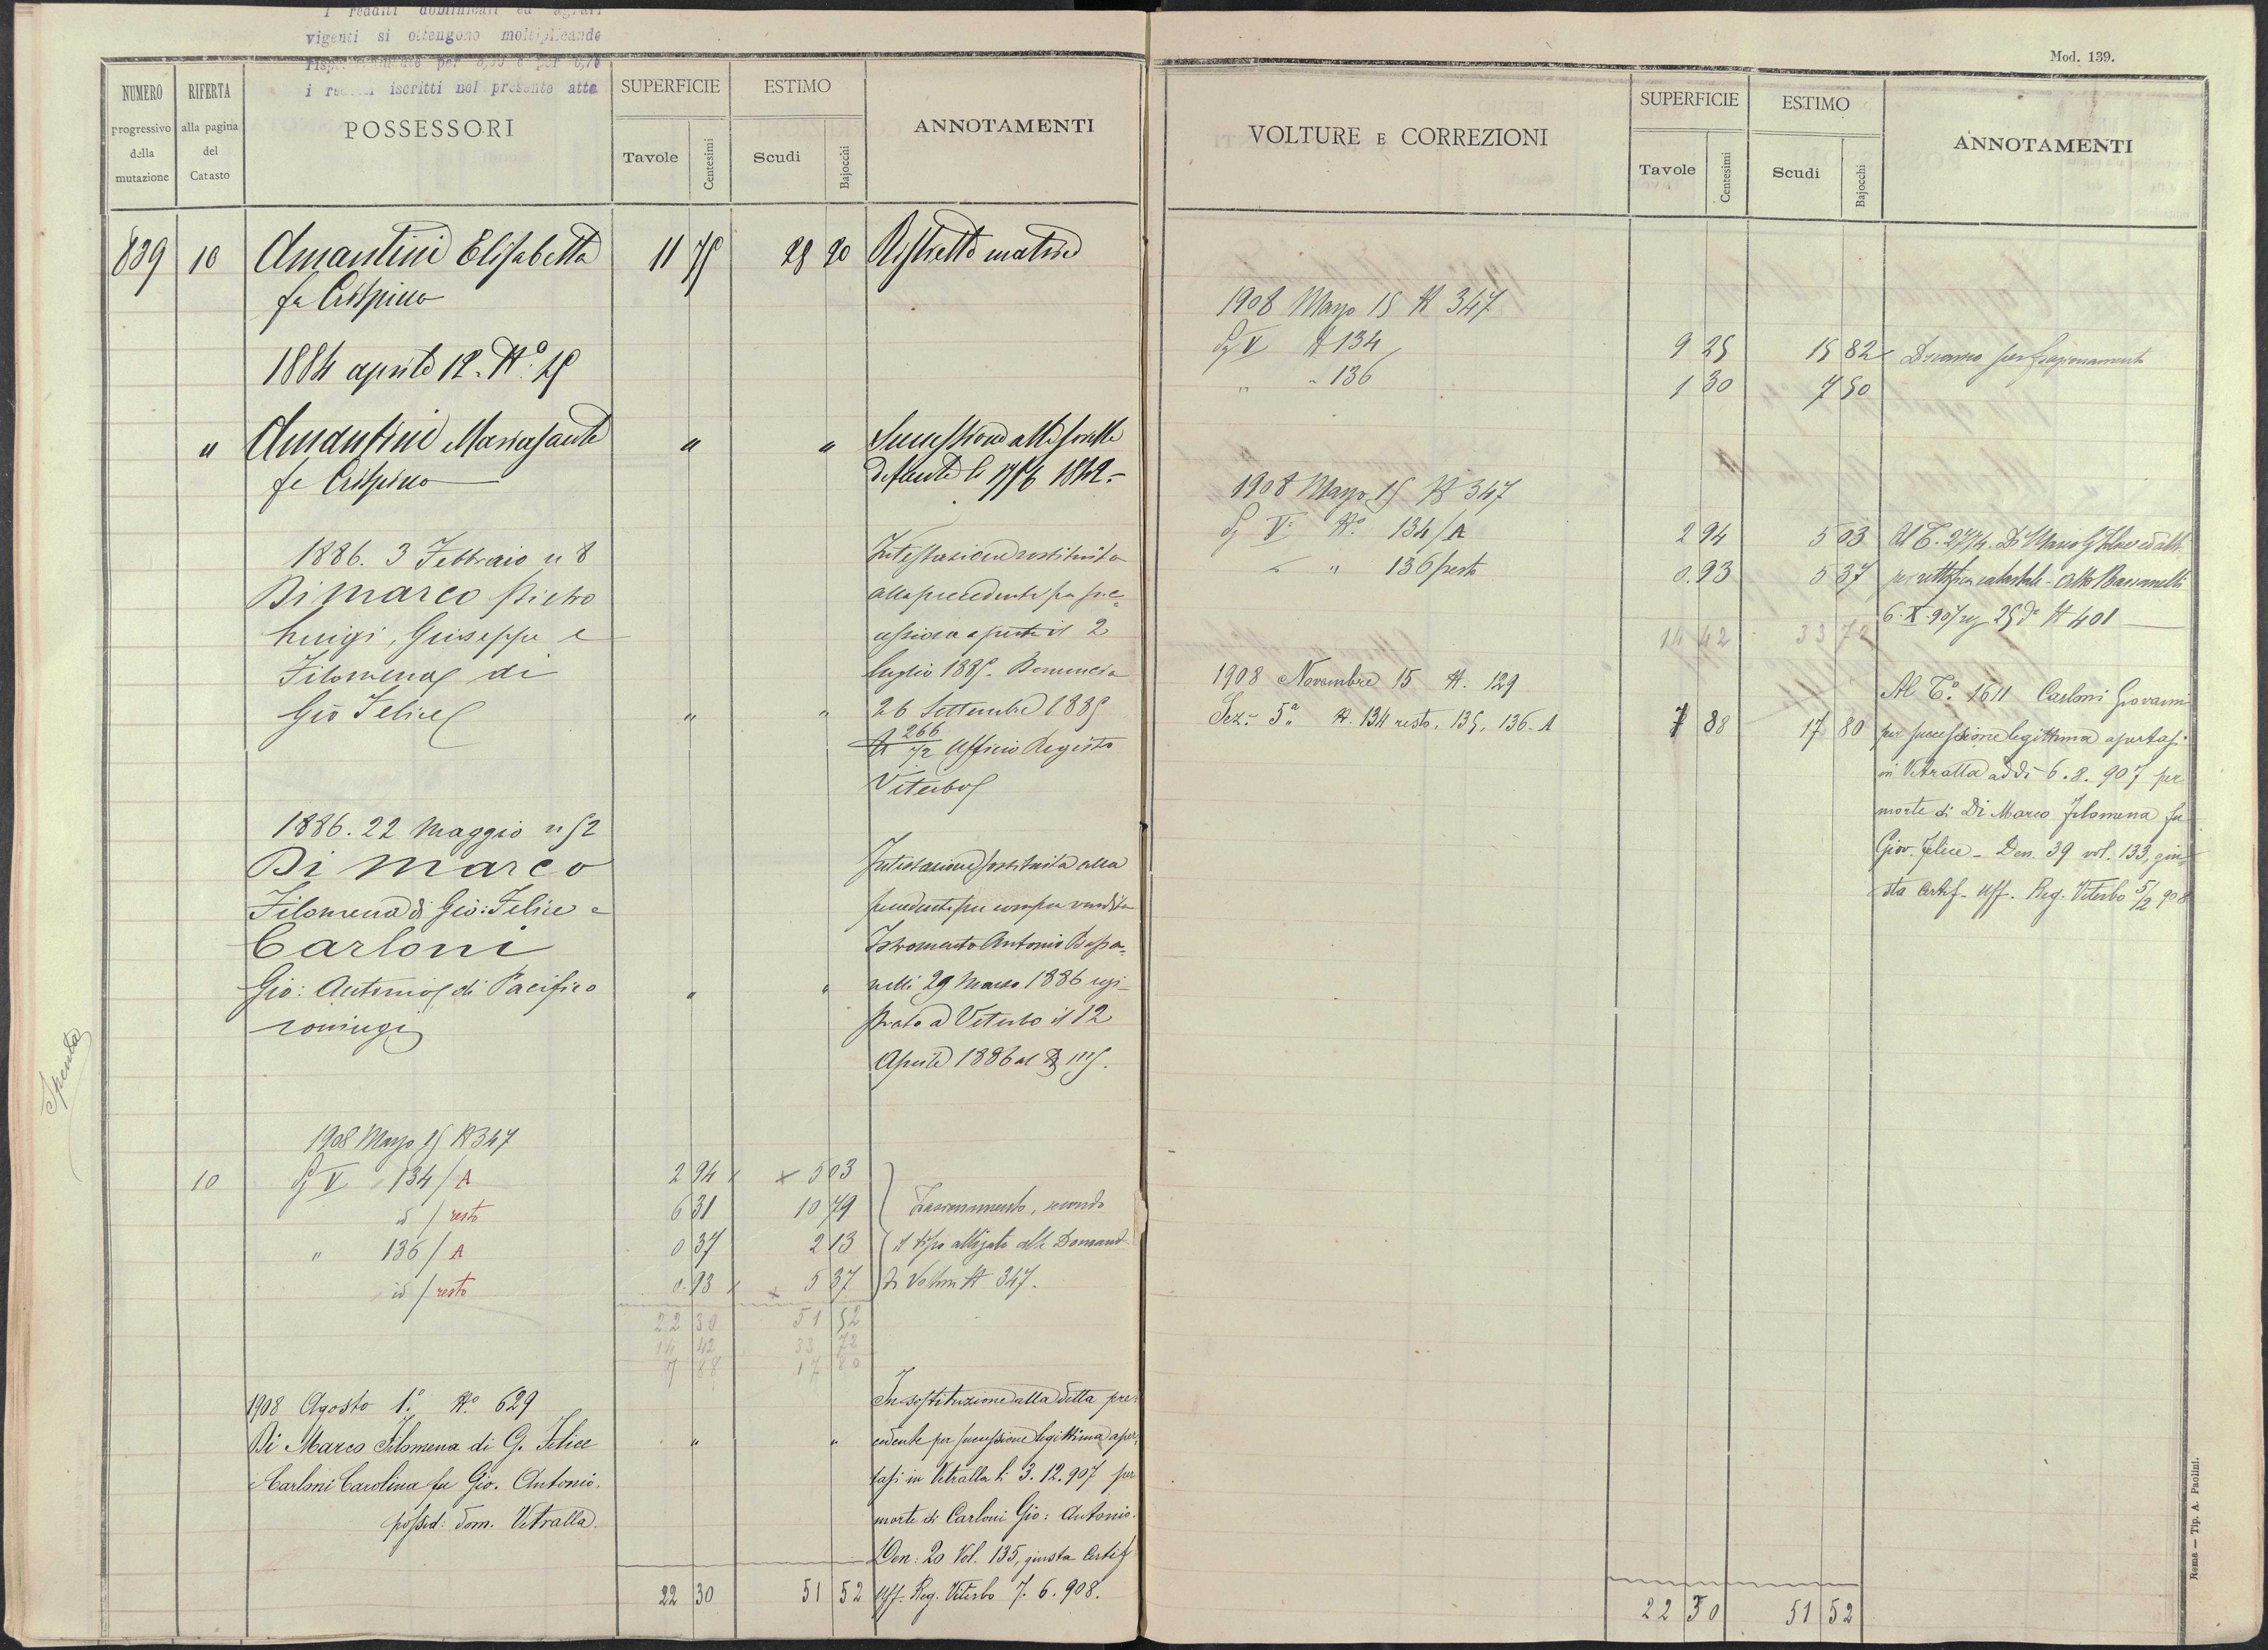 I redditi dominicali ed agrari
vigenti si ottengono moltiplicando
per 0,90 e per 0,75
i redditi iscritti nel presente atto
NUMERO progressivo della mutazione
RIFERTA alla pagina del Catasto
POSSESSORI
SUPERFICIE
Tavole Centesimi
ESTIMO
Scudi Bajocchi
ANNOTAMENTI
839 10 Amantini Elisabetta 11 75 28 20 Ristretto matrice
fu Crispino
1884 aprile 12. N.º 25
" Amantini Mariasante " " Successione alla sorella
fu Crispino defunta li 1842.-
1886. 3 Febbraio n 8 Intestazione sostituita
Di Marco Pietro alla precedente per suc=
Luigi, Giuseppe e cessione aperta il 2
Filomena di luglio 1885. Denuncia
Gio Felice " " 26 Settembre 1885
N 266/72 Ufficio Registro
Viterbo
1886. 22 Maggio n 52
Di Marco Intestazione sostituita alla
Filomena di Gio: Felice e precedente per compra vendita
Carloni Istromento Antonio Bassa=
Gio: Antonio di Pacifico " " nelli 29 Marzo 1886 regi-
coniugi strato a Viterbo il 12
Aprile 1886 al
Spenta
1908 Marzo 15 N 347
10 Sz V 134/A 2 94 x 5 03
id/resto 6 31 10 79 Frazionamento, secondo
" 136/A 0 37 2 13 il tipo alligato alla Domanda
id/resto 0.93 x 5 37 di Voltura N 347.
22 30 51 52
14 42 33 72
7 88 17 80
1908 Agosto 1.º N.º 629 In sostituzione alla ditta pre=
Di Marco Filomena di G. Felice " " cedente per successione legittima aper=
e Carloni Carolina fu Gio. Antonio. tasi in Vetralla li 3.12.907 per
possid: dom. Vetralla. morte di Carloni Gio: Antonio.
Den: 20 Vol. 135, giusta Certif
22 30 51 52 Uff. Reg. Viterbo 7.6.908.
Mod. 139.
VOLTURE E CORREZIONI
SUPERFICIE
Tavole Centesimi
ESTIMO
Scudi Bajocchi
ANNOTAMENTI
1908 Marzo 15 N 347
Sz V N 134 9 25 15 82 Discarico per frazionamento
" " 136 1 30 7 50
1908 Marzo 15 N 347
Sz V: N.º 134/A 2 94 5 03 Al T. 2774. Di Marco ed altri
" " 136/resto 0.93 5 37 per rettifica catastale - Atto Bassanelli
14 42 33 72 6.X.907 reg 25 dº N 401
1908 Novembre 15 N. 129 Al T.º 1611 Carloni Giovanni
Sez: 5ª N. 134 resto, 135, 136.A 7 88 17 80 per successione legittima apertasi
in Vetralla addì 6.8.907 per
morte di Di Marco Filomena fu
Giov. Felice - Den. 39 vol. 133, giu=
sta Certif. Uff. Reg. Viterbo 5/2 908
22 30 51 52
Roma — Tip. A. Paolini.